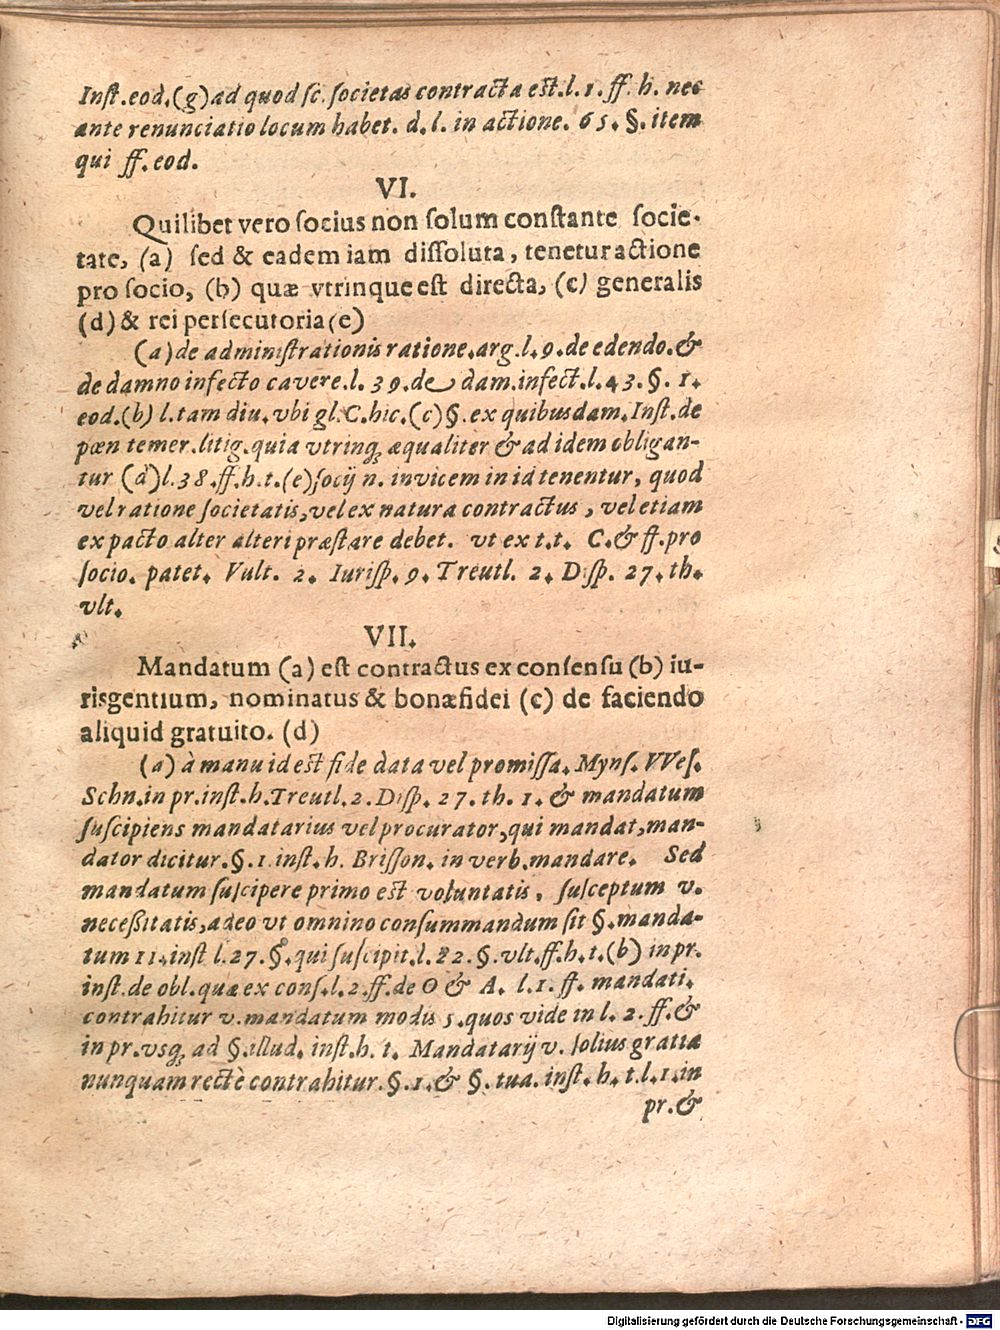 Inſt.eod.(g)ad quod ſc. ſocietas contracta eſt.l.1.ff.h. nec
ante renunciatio locum habet. d.l. in actione. 65. §. item
qui ff.eod.
VI.
Quilibet vero ſocius non ſolum conſtante ſocie-
tate, (a) ſed & eadem iam diſſoluta, tenetur actione
pro ſocio, (b) quæ vtrinque eſt directa, (c) generalis
(d) & rei perſecutoria (e)
(a) de adminiſtrationis ratione.arg.l.9.de edendo.&
de damno infecto cavere.l. 39.de dam.infect.l.43.§. 1.
eod.(b) l.tam diu.vbi gl.C.hic.(c)§.ex quibusdam.Inſt.de
pœn temer.litig.quia vtrinq́; æqualiter & ad idem obligan-
tur (d)l.38.ff.h.t.(e)ſocij n. invicem in id tenentur, quod
vel ratione ſocietatis,vel ex natura contractus , vel etiam
ex pacto alter alteri præſtare debet. vt ex t.t. C.& ff.pro
ſocio. patet. Vult. 2. Iuriſp. 9. Treutl. 2. Diſp. 27. th.
vlt.
VII.
Mandatum (a) eſt contractus ex conſenſu (b) iu-
risgentium, nominatus & bonæfidei (c) de faciendo
aliquid gratuito. (d)
(a) à manu id eſt fide data vel promiſſa. Mynſ. VVeſ.
Schn.in pr.inſt.h.Treutl.2.Diſp. 27. th. 1. & mandatum
ſuſcipiens mandatarius vel procurator,qui mandat,man-
dator dicitur.§.1.inſt.h. Briſſon. in verb.mandare. Sed
mandatum ſuſcipere primo eſt voluntatis, ſuſceptum v.
neceßitatis,adeo vt omnino conſummandum ſit §.manda-
tum 11.inſt l.27.§.qui ſuſcipit.l.22.§.vlt.ff.h.t.(b) in pr.
inſt.de obl.quæ ex conſ.l.2.ff.de O & A. l.1. ff. mandati.
contrahitur v.mandatum modis 5.quos vide in l. 2.ff.&
in pr.vsq́; ad §.illud. inſt.h. t. Mandatarij v. ſolius gratia
nunquam rectè contrahitur.§.1.& §.tua. inſt. h. t.l.1.in
pr.&
Digitalisierung gefördert durch die Deutsche Forschungsgemeinschaft - DFG